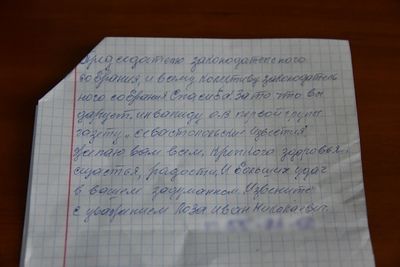 Председателю законодательского
собрания, и всему колективу законодатель
ного собрания Спасиба! За то что вы
даруете инвалиду о.в. первой групы
газету „Севастопольские Известия"
Желаю вам всем, Крепкого здоровья,
счастья, радости, И больших удач
в вашем задуманном. Извените
с уважением Коза Иван Николаевич.